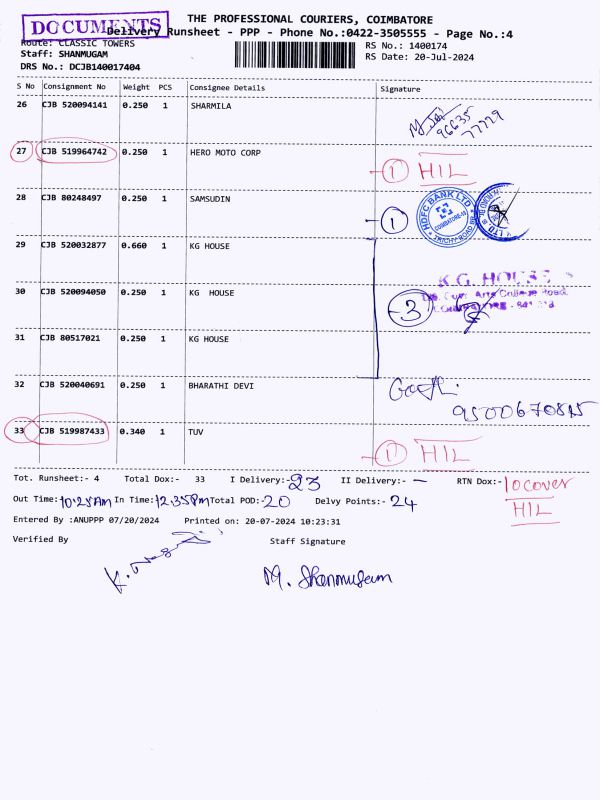 DOCUMENTS
THE PROFESSIONAL COURIERS, COIMBATORE
Delivery Runsheet - PPP - Phone No.:0422-3505555 - Page No.:4
Route: CLASSIC TOWERS
RS No.: 1400174
Staff: SHANMUGAM
RS Date: 20-Jul-2024
DRS No.: DCJB140017404
S No Consignment No Weight PCS Consignee Details Signature
26 CJB 520094141 0.250 1 SHARMILA
96635
77779
27 CJB 519964742 0.250 1 HERO MOTO CORP
1 HIL
28 CJB 80248497 0.250 1 SAMSUDIN
1 HDFC BANK LTD
COIMBATORE-18
TRICHY ROAD BR
29 CJB 520032877 0.660 1 KG HOUSE
K.G. HOUSE
30 CJB 520094050 0.250 1 KG  HOUSE
3 Govt Arts College Road,
31 CJB 80517021 0.250 1 KG HOUSE
32 CJB 520040691 0.250 1 BHARATHI DEVI
33 CJB 519987433 0.340 1 TUV
1 HIL
Tot. Runsheet:- 4 Total Dox:- 33 I Delivery:-23 II Delivery:- - RTN Dox:-10 cover
HIL
Out Time:10:25Am In Time:12:35Pm Total POD:-20 Delvy Points:- 24
Entered By :ANUPPP 07/20/2024 Printed on: 20-07-2024 10:23:31
Verified By Staff Signature
M. Shanmugam